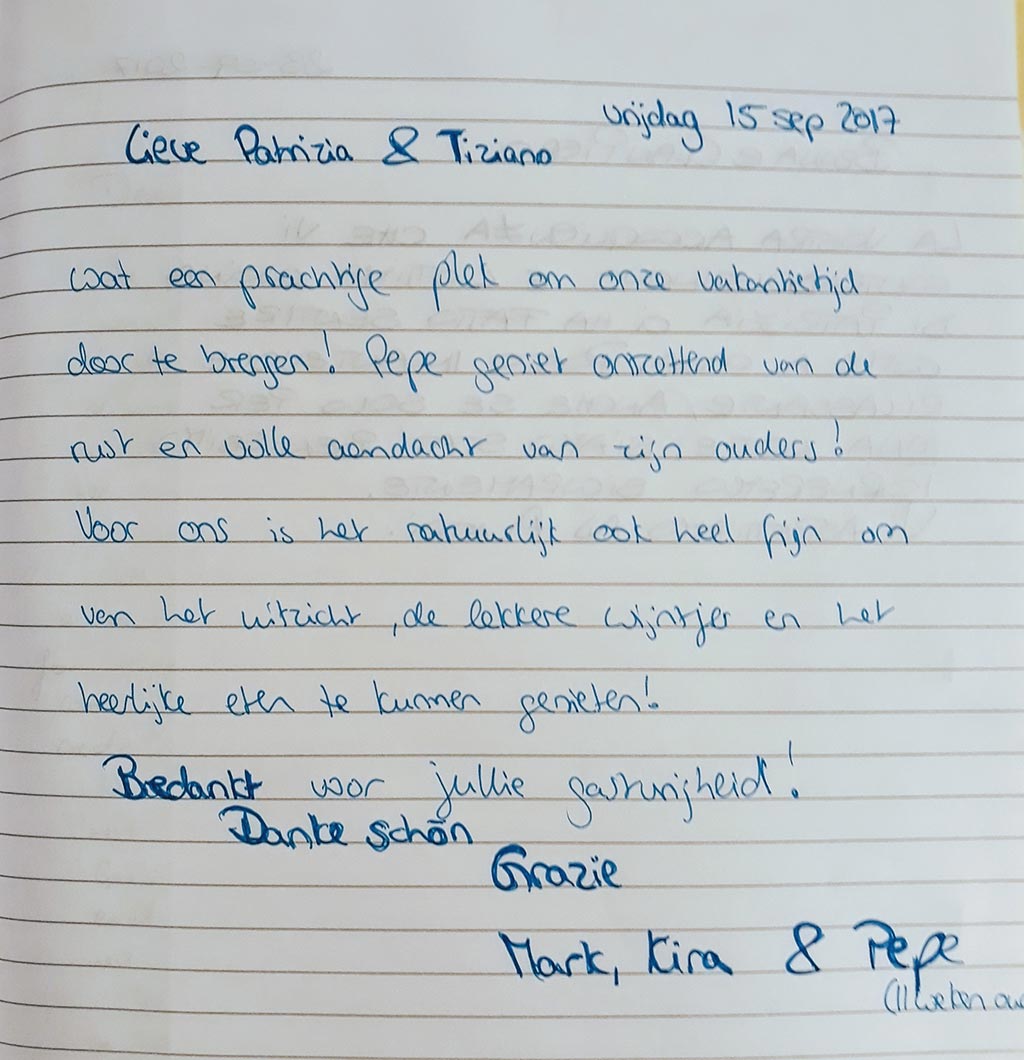 vrijdag 15 sep 2017
Lieve Patrizia & Tiziano
wat een prachtige plek om onze vakantietijd
door te brengen! Pepe geniet ontzettend van de
rust en volle aandacht van zijn ouders!
Voor ons is het natuurlijk ook heel fijn om
van het uitzicht, de lekkere wijntjes en het
heerlijke eten te kunnen genieten!
Bedankt voor jullie gastvrijheid!
Danke schön
Grazie
Mark, Kira & Pepe
(11 weken ou